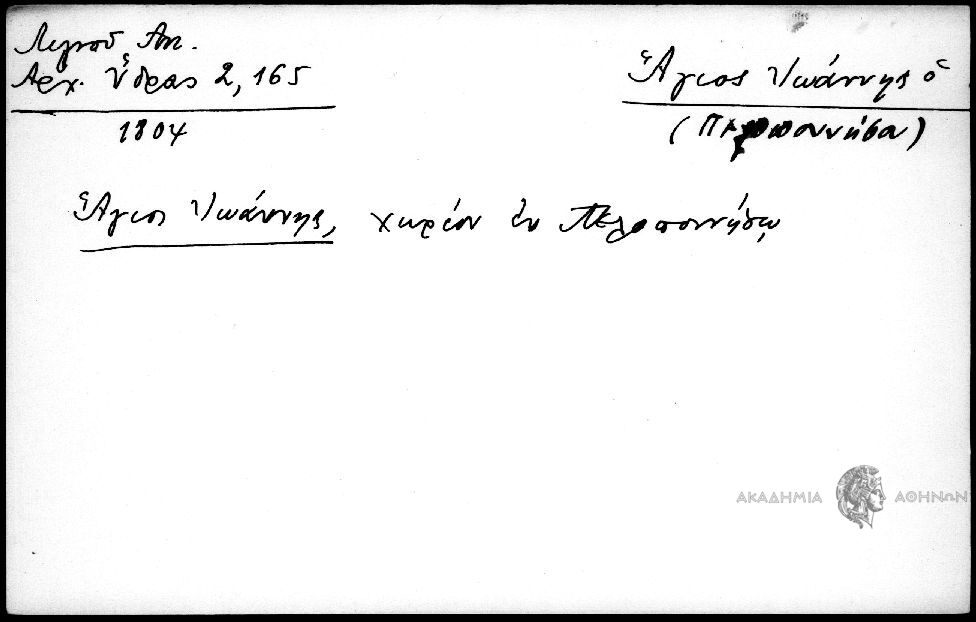 Λιγνοῦ Ἀν.
Ἀρχ. Ὕδρας 2, 165
1804
Ἅγιος Ἰωάννης ὁ
(Πελοποννήσου)
Ἅγιος Ἰωάννης, χωρίον ἐν Πελοποννήσῳ
ΑΚΑΔΗΜΙΑ ΑΘΗΝΩΝ